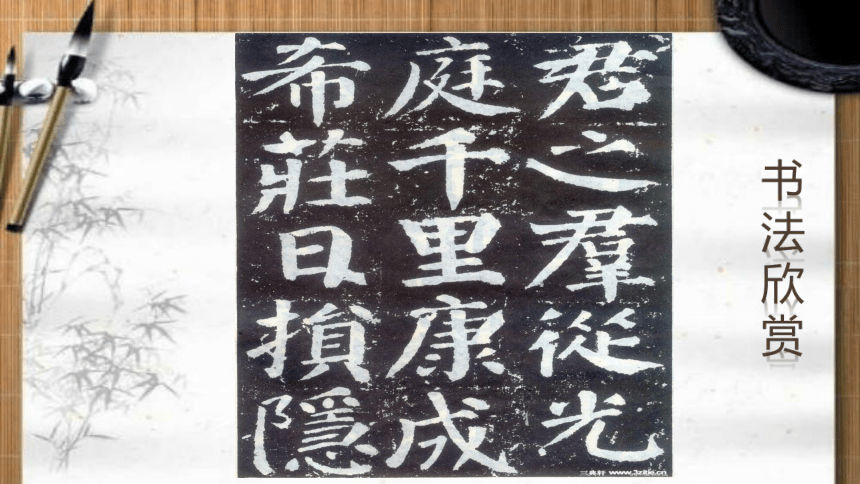 书法欣赏
君之羣從光
庭千里康成
希莊日損隱
三典轩 www.3zitie.cn